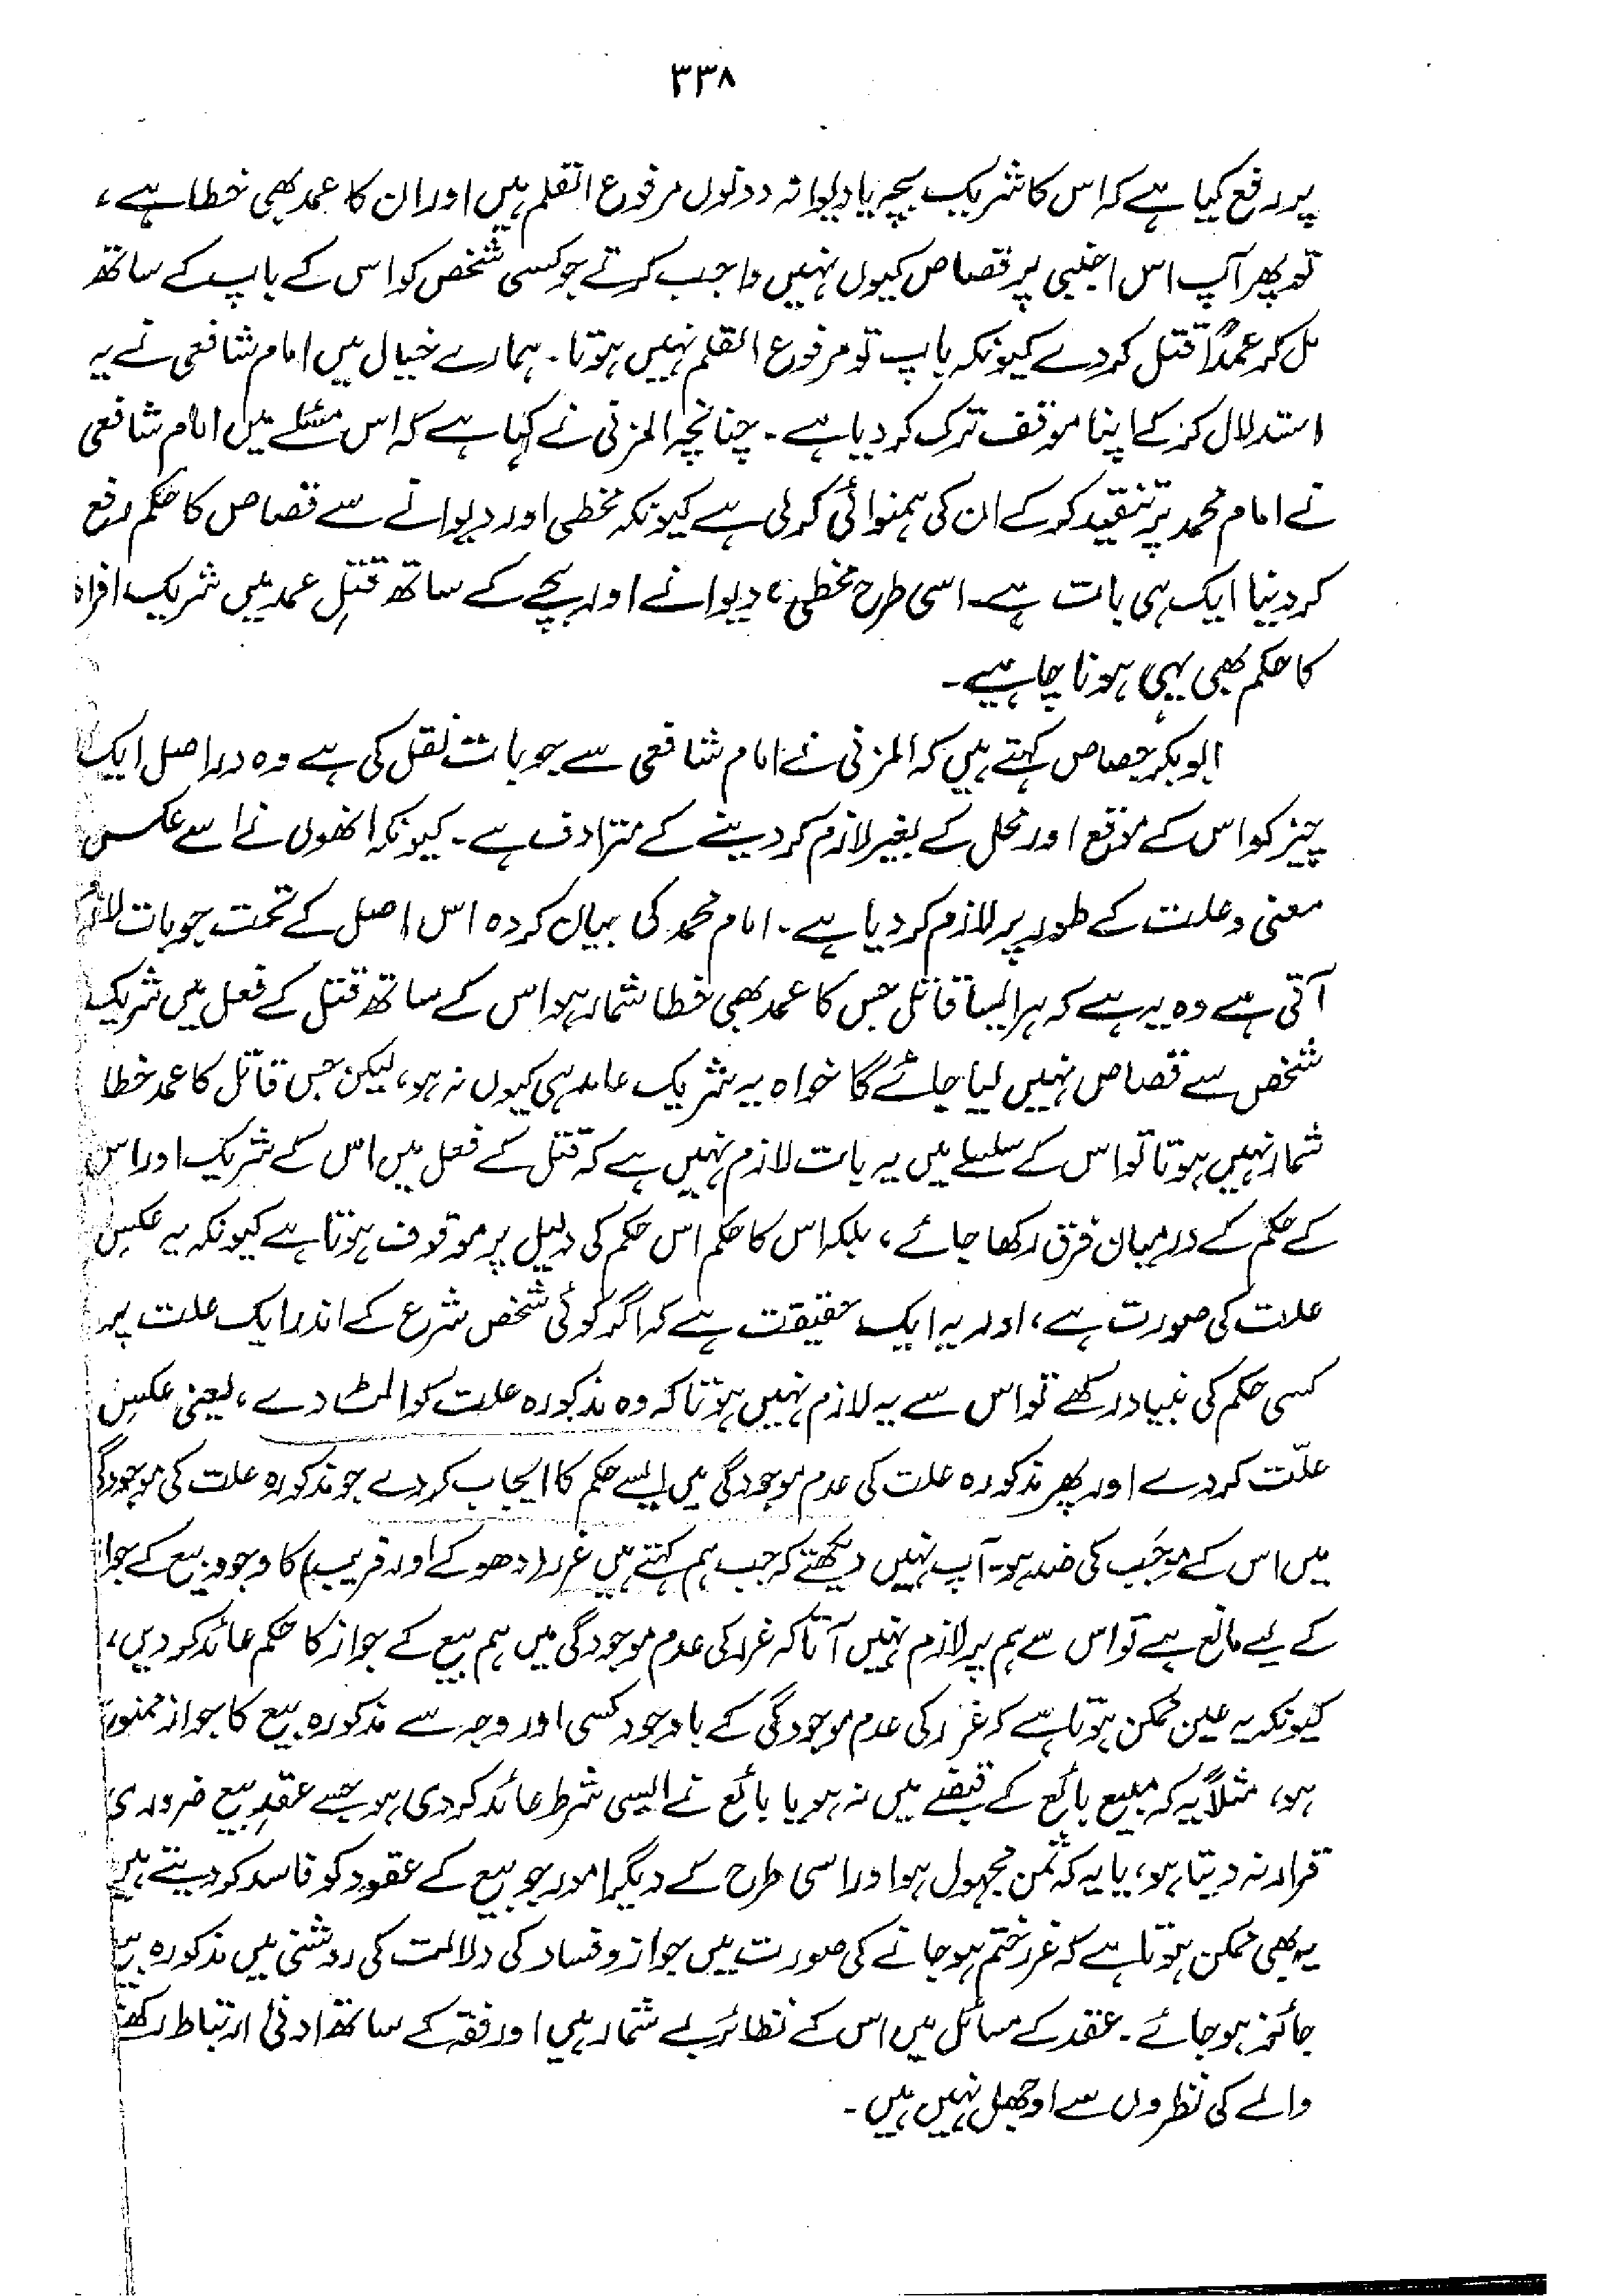 ۳۳۸
پر رفع کیا ہے کہ اس کا شریک بچہ یا دیوانہ دونوں مرفوع القلم ہیں اور ان کا عمد بھی خطا ہے،
تو پھر آپ اس اجنبی پر قصاص کیوں نہیں واجب کرتے جو کسی شخص کو اس کے باپ کے ساتھ
مل کر عمداً قتل کر دے کیونکہ باپ تو مرفوع القلم نہیں ہوتا۔ ہمارے خیال میں امام شافعی نے یہ
استدلال کر کے اپنا موقف ترک کر دیا ہے۔ چنانچہ المزنی نے کہا ہے کہ اس مسئلے میں امام شافعی
نے امام محمد پر تنقید کر کے ان کی ہمنوائی کر لی ہے کیونکہ مخطی اور دیوانے سے قصاص کا حکم رفع
کر دینا ایک ہی بات ہے۔ اسی طرح مخطی، دیوانے اور بچے کے ساتھ قتلِ عمد میں شریک افراد
کا حکم بھی یہی ہونا چاہیے۔
ابوبکر جصاص کہتے ہیں کہ المزنی نے امام شافعی سے جو بات نقل کی ہے وہ دراصل ایک
چیز کو اس کے موقع اور محل کے بغیر لازم کر دینے کے مترادف ہے۔ کیونکہ انھوں نے اسے عکس
معنی وعلت کے طور پر لازم کر دیا ہے۔ امام محمد کی بیان کردہ اس اصل کے تحت جو بات لازم
آتی ہے وہ یہ ہے کہ ہر ایسا قاتل جس کا عمد بھی خطا شمار ہو اس کے ساتھ قتل کے فعل میں شریک
شخص سے قصاص نہیں لیا جائے گا خواہ یہ شریک عامد ہی کیوں نہ ہو، لیکن جس قاتل کا عمد خطا
شمار نہیں ہوتا تو اس کے سلسلے میں یہ بات لازم نہیں ہے کہ قتل کے فعل میں اس کے شریک اور اس
کے حکم کے درمیان فرق رکھا جائے، بلکہ اس کا حکم اس حکم کی دلیل پر موقوف ہوتا ہے کیونکہ یہ عکسِ
علت کی صورت ہے، اور یہ ایک حقیقت ہے کہ اگر کوئی شخص شرع کے اندر ایک علت پر
کسی حکم کی بنیاد رکھے تو اس سے یہ لازم نہیں ہوتا کہ وہ مذکورہ علت کو الٹ دے، یعنی عکسِ
علّت کر دے اور پھر مذکورہ علت کی عدم موجودگی میں ایسے حکم کا ایجاب کر دے جو مذکورہ علت کی موجودگی
میں اس کے موجَب کی ضد ہو۔ آپ نہیں دیکھتے کہ جب ہم کہتے ہیں غرر (دھوکے اور فریب) کا وجود بیع کے جواز
کے لیے مانع ہے تو اس سے ہم پر لازم نہیں آتا کہ غرر کی عدم موجودگی میں ہم بیع کے جواز کا حکم عائد کر دیں،
کیونکہ یہ عین ممکن ہوتا ہے کہ غرر کی عدم موجودگی کے باوجود کسی اور وجہ سے مذکورہ بیع کا جواز ممنوع
ہو، مثلاً یہ کہ مبیع بائع کے قبضے میں نہ ہو یا بائع نے ایسی شرط عائد کر دی ہو جسے عقدِ بیع ضروری
قرار نہ دیتا ہو، یا یہ کہ ثمن مجہول ہو اور اسی طرح کے دیگر امور جو بیع کے عقود کو فاسد کر دیتے ہیں
یہ بھی ممکن ہوتا ہے کہ غرر ختم ہو جانے کی صورت میں جواز وفساد کی دلالت کی روشنی میں مذکورہ بیع
جائز ہو جائے۔ عقد کے مسائل میں اس کے نظائر بے شمار ہیں اور فقہ کے ساتھ ادنیٰ ارتباط رکھنے
والے کی نظروں سے اوجھل نہیں ہیں۔